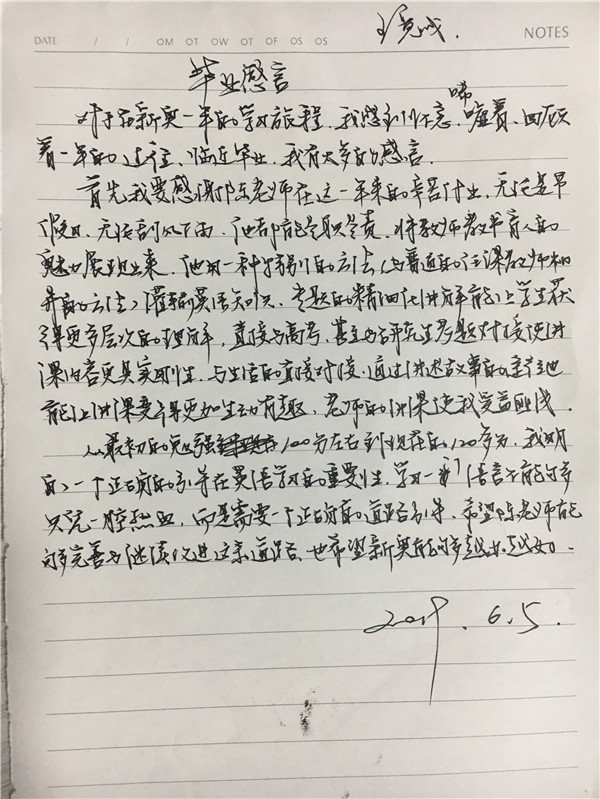 DATE / / MO TO WO TO FO SO SO NOTES
毕业感言
对于在新奥一年的学习旅程,我感到惬意,唏嘘着、回顾
着一年的过往,临近毕业,我有太多的感言。
首先我要感谢陈老师在这一年来的辛苦付出,无论是早
假日,无论刮风下雨,他都能尽职尽责,将教师教书育人的
魅力展现出来,他用一种特别的方法(与普通的任课教师相
异的方法)灌输英语知识,专题的精细化讲解能让学生获
得更多层次的理解,直接与高考,甚至与研究生考题对接使讲
课内容更具实用性,与生活的直接对接,通过讲述故事的生动地
能让讲课变得更加生动有趣,老师的讲课使我受益匪浅。
从最初的勉强100分左右到现在的120多分,我明
白了一个正确的引导在英语学习的重要性,学习一门语言不能够
只凭一腔热血,而是需要一个正确的道路引导,希望陈老师能
够完善与继续促进这条道路,也希望新奥能够越办越好。
2019.6.5.